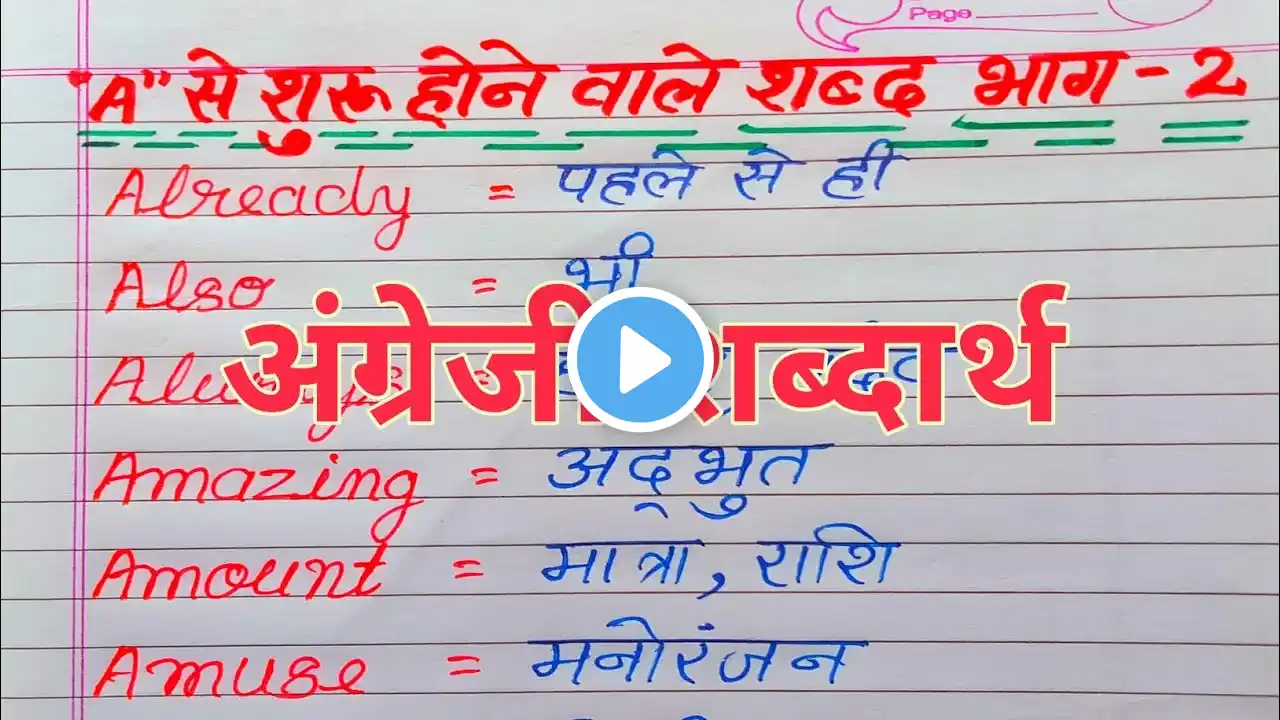 Page
"A" से शुरू होने वाले शब्द भाग - 2
Already = पहले से ही
Also = भी
अंग्रेजी शब्दार्थ
Amazing = अद्‌भुत
Amount = मात्रा, राशि
Amuse = मनोरंजन